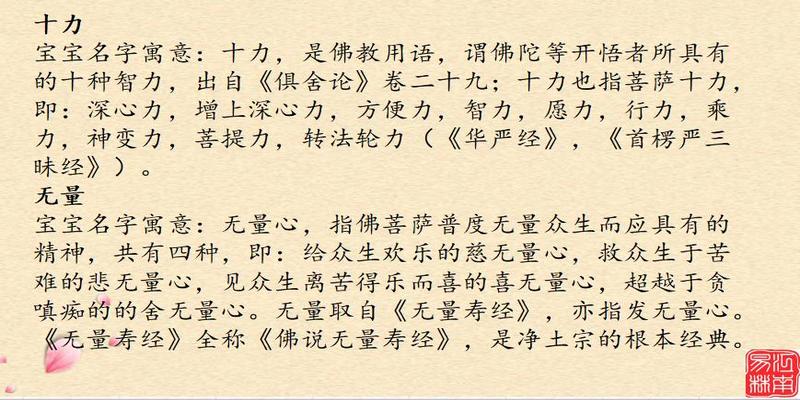 十力
宝宝名字寓意：十力，是佛教用语，谓佛陀等开悟者所具有
的十种智力，出自《俱舍论》卷二十九；十力也指菩萨十力，
即：深心力，增上深心力，方便力，智力，愿力，行力，乘
力，神变力，菩提力，转法轮力（《华严经》，《首楞严三
昧经》）。
无量
宝宝名字寓意：无量心，指佛菩萨普度无量众生而应具有的
精神，共有四种，即：给众生欢乐的慈无量心，救众生于苦
难的悲无量心，见众生离苦得乐而喜的喜无量心，超越于贪
嗔痴的的舍无量心。无量取自《无量寿经》，亦指发无量心。
《无量寿经》全称《佛说无量寿经》，是净土宗的根本经典。
江南
易林